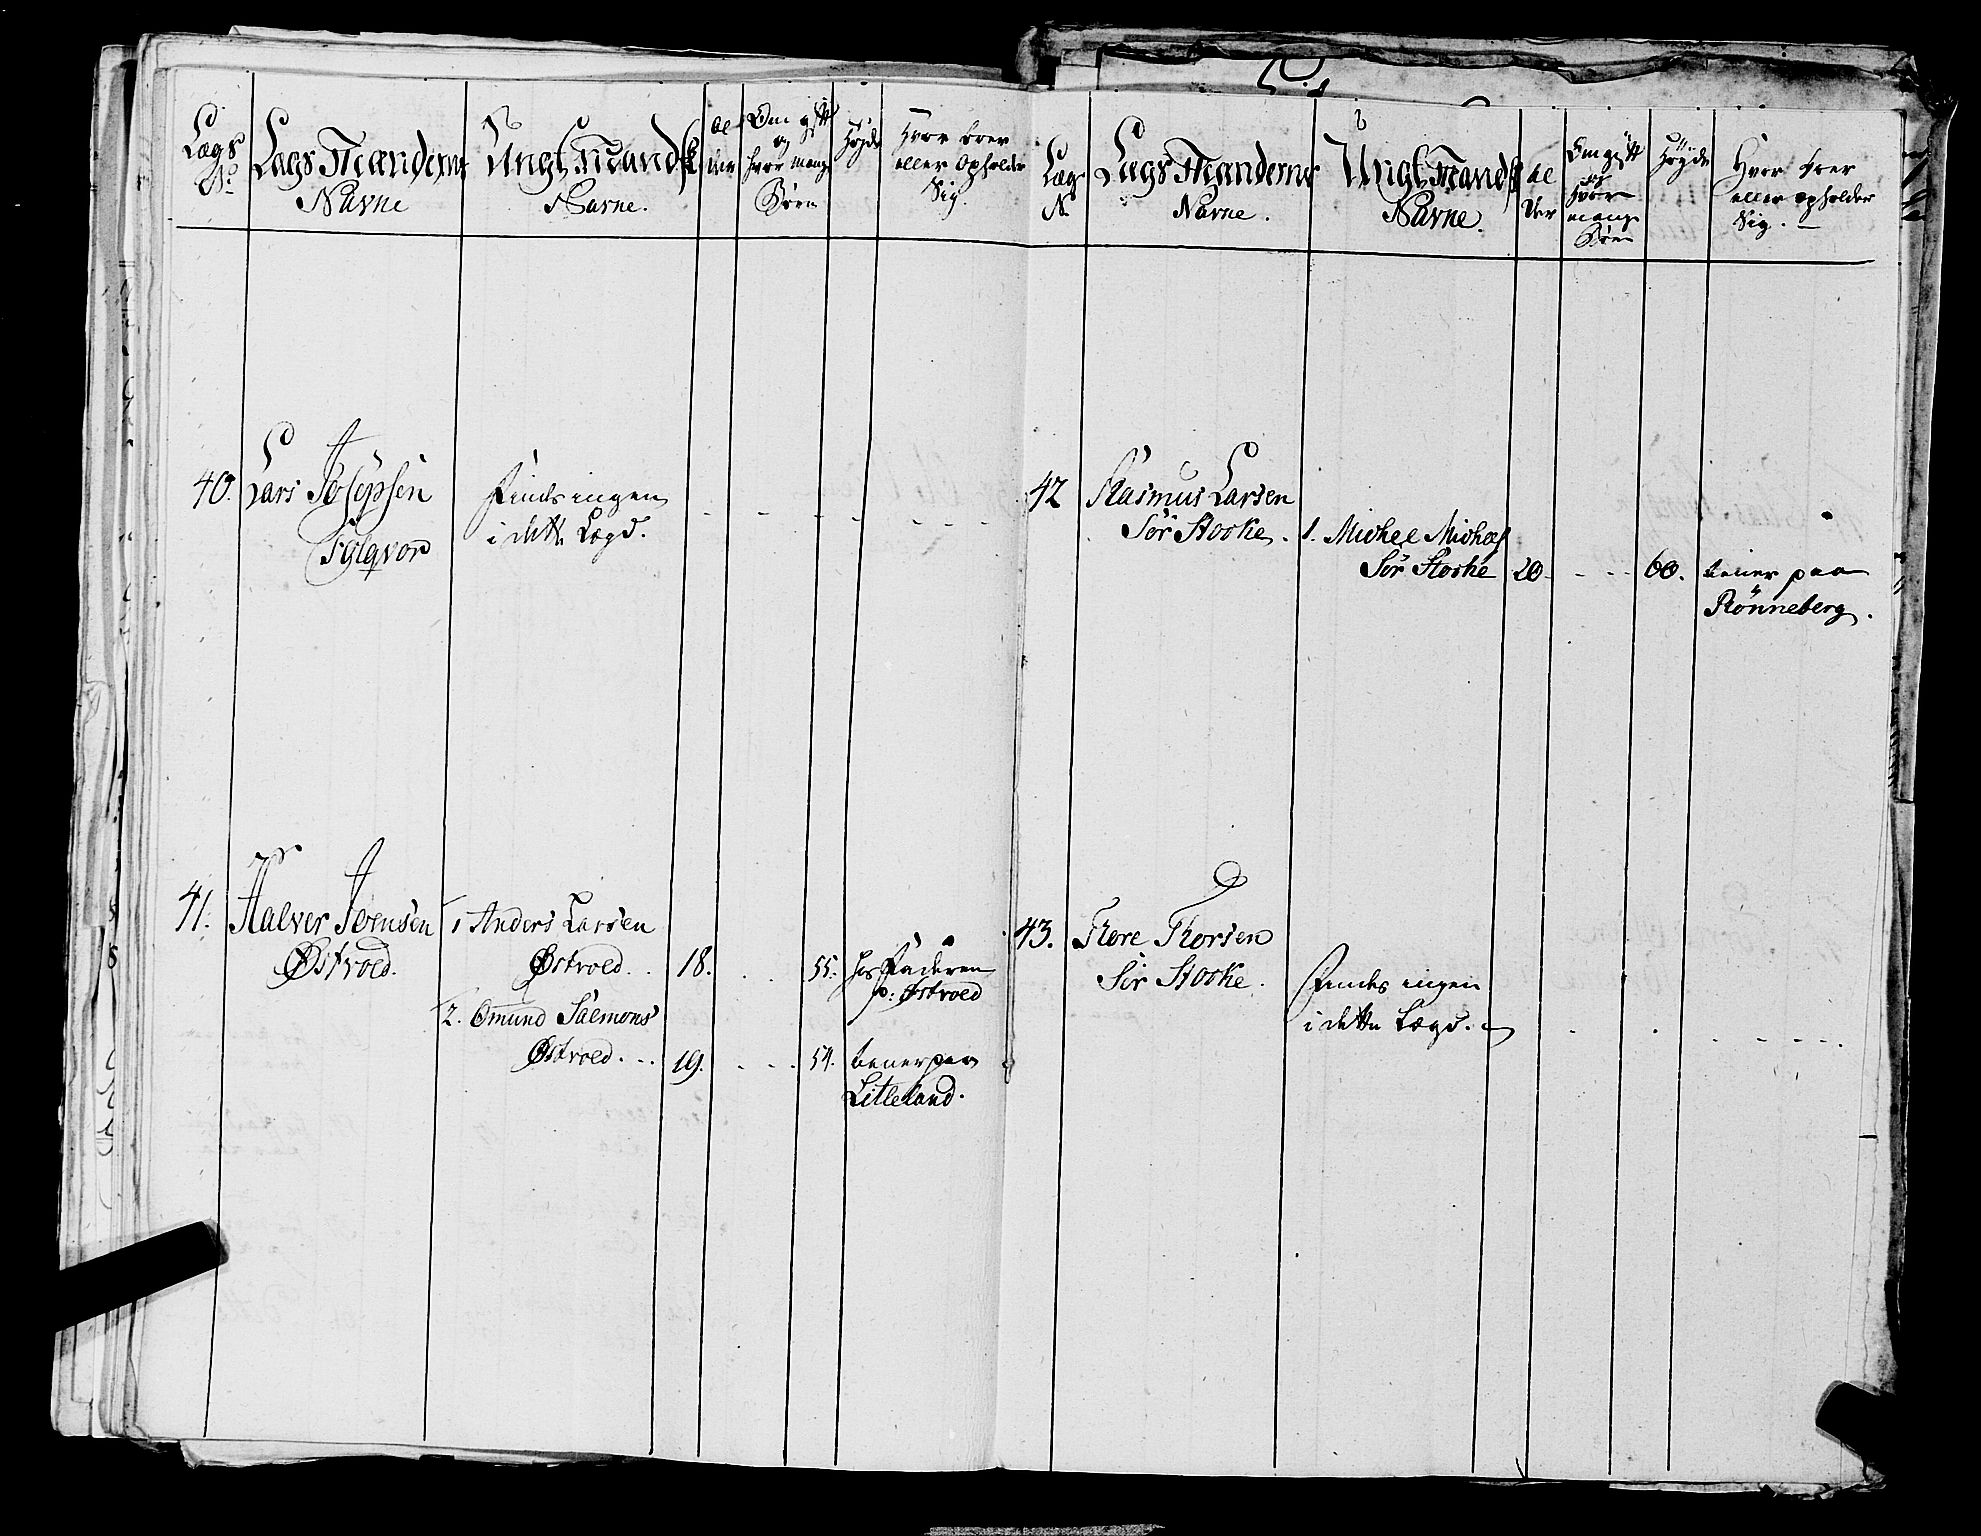 Lægs No
Lægs Mandernes
Navne
Ungl. Mandsk
Navne.
Al
der
Om gift
og
hvor mange
Børn
Højde
Hvor boer
eller opholder
Sig.
40. Lars Josepsen
Finds ingen
i dette Lægd.
41. Halver Jorensen
Østvold.
1 Anders Larsen
Østvold . . 18. 55. hos Faderen
p: Østvold
2. Omund Saemons
Østvold . . . 19. 54. tiener paa
Litleland.
Læg
N
Lægs Mandernes
Navne.
Ungl. Mandsk
Navne.
Al
der
Om gift
og
hvor
mange
Børn
Højde
Hvor boer
eller opholder
Sig.
42 Rasmus Larsen
Sør Stokke. 1. Michel Michels
Sør Stokke 20 60. tiener paa
Rønneberg.
43. Tore Thorsen
Sør Stokke.
Findes ingen
i dette Lægd.